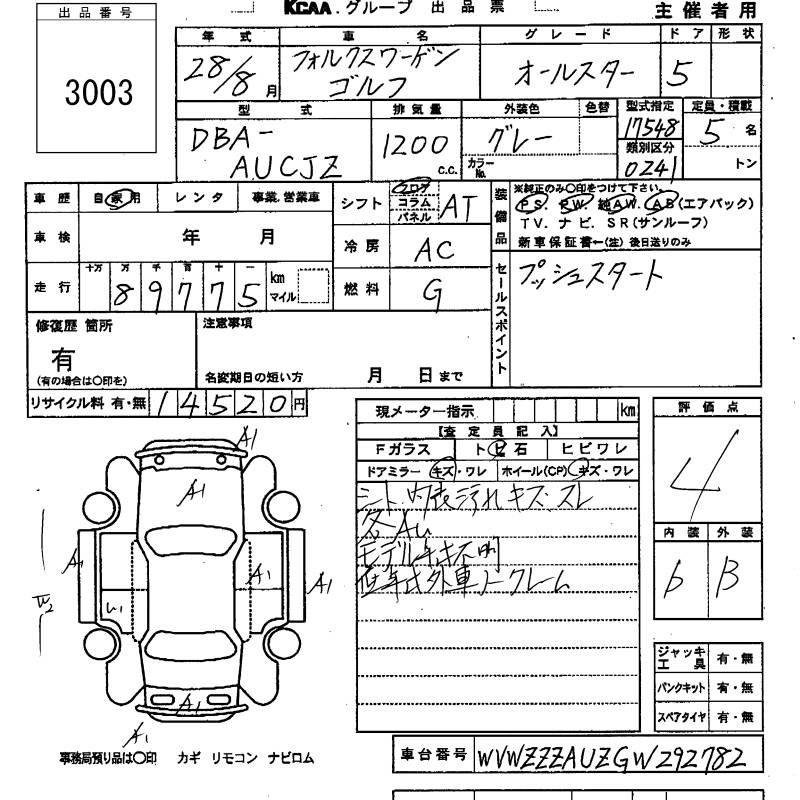 出品番号
3003
KCAA.グループ 出品票
主催者用
年式 車名 グレード ドア 形状
28/8月 フォルクスワーゲン ゴルフ オールスター 5
型式 排気量 外装色 色替 型式指定 定員・積載
DBA-AUCJZ 1200 c.c. グレー カラーNo. 17548 5名
類別区分
0241 トン
車歴 自家用 レンタ 事業.営業車
シフト フロア コラム パネル AT
装備品 ※純正のみ○印をつけて下さい。
PS. PW. 純AW. AB(エアバック)
TV. ナビ. SR(サンルーフ)
新車保証書―(注) 後日送りのみ
車検 年 月
冷房 AC
走行 十万 万 千 百 十 一
89775 km マイル
燃料 G
セールスポイント プッシュスタート
修復歴 箇所
有
(有の場合は○印を)
注意事項
名変期日の短い方 月 日まで
リサイクル料 有・無 14520円
現メーター指示 km
【査定員記入】
Fガラス トビ石 ヒビワレ
ドアミラー キズ・ワレ ホイール(CP) キズ・ワレ
シート・内装汚れキズ・スレ
各AU
モデル年式不明
低年式外車ノークレーム
評価点
4
内装 外装
b B
A1
A1
A1
A1
A1
U1
W2
A1
A1
ジャッキ工具 有・無
パンクキット 有・無
スペアタイヤ 有・無
事務局預り品は○印 カギ リモコン ナビロム
車台番号 WVWZZZAUZGW292782